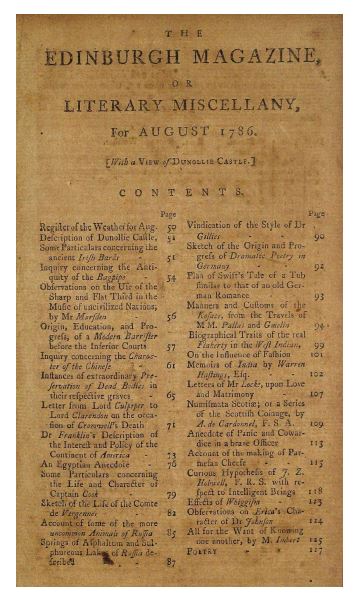 THE
EDINBURGH MAGAZINE,
OR
LITERARY MISCELLANY,
For AUGUST 1786.
[With a VIEW of DUNOLLIE CASTLE.]
CONTENTS.
Page
Register of the Weather for Aug. 50
Description of Dunollie Castle, 51
Some Particulars concerning the
ancient Irish Bards 51
Inquiry concerning the Anti-
quity of the Bagpipe 54
Observations on the Use of the
Sharp and Flat Third in the
Music of uncivilized Nations,
by Mr Marsden 56
Origin, Education, and Pro-
gress, of a Modern Barrister
before the Inferior Courts 57
Inquiry concerning the Charac-
ter of the Chinese 61
Instances of extraordinary Pre-
servation of Dead Bodies in
their respective graves 65
Letter from Lord Culpeper to
Lord Clarendon on the occa-
sion of Cromwell's Death 71
Dr Franklin's Description of
the Interest and Policy of the
Continent of America 73
An Egyptian Anecdote 76
Some Particulars concerning
the Life and Character of
Captain Cook 79
Sketch of the Life of the Comte
de Vergennes 82
Account of some of the more
uncommon Animals of Russia 85
Springs of Asphaltum and Sul-
phureous Lakes of Russia de-
scribed 87
Page
Vindication of the Style of Dr
Gillies 90
Sketch of the Origin and Pro-
gress of Dramatic Poetry in
Germany 92
Plan of Swift's Tale of a Tub
similar to that of an old Ger-
man Romance 93
Manners and Customs of the
from the Travels of
M M. Pallas and Gmelin 94
Biographical Traits of the real
in the West Indian, 99
On the Influence of Fashion 101
Memoirs of India by Warren
Hastings, Esq. 102
Letters of Mr Locke, upon Love
and Matrimony 107
Numismata Scotiæ; or a Series
of the Scottish Coinage, by
A. de Cardonnel, F. S. A. 109
Anecdote of Panic and Cowar-
dice in a brave Officer 113
Account of the making of Par-
mesan Cheese 115
Curious Hypothesis of J. Z.
Holwell, F. R. S. with re-
spect to Intelligent Beings 118
Effects of Whiggism 123
Observations on Erica's Cha-
racter of Dr Johnson 124
All for the Want of Knowing
one another, by M. Imbert 125
POETRY 127